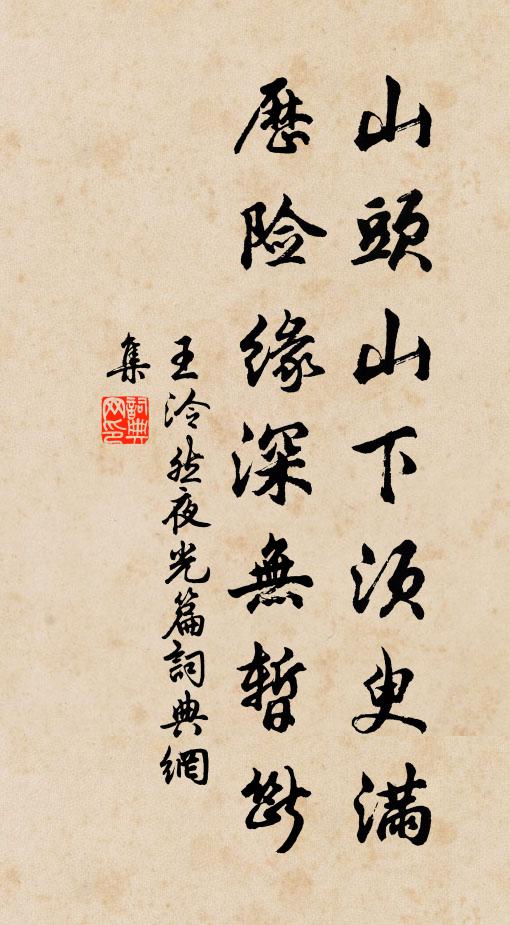 山頭山下須臾滿
歷險緣深無暫斷
王泠然夜光篇詞典網
集
詞典
网印